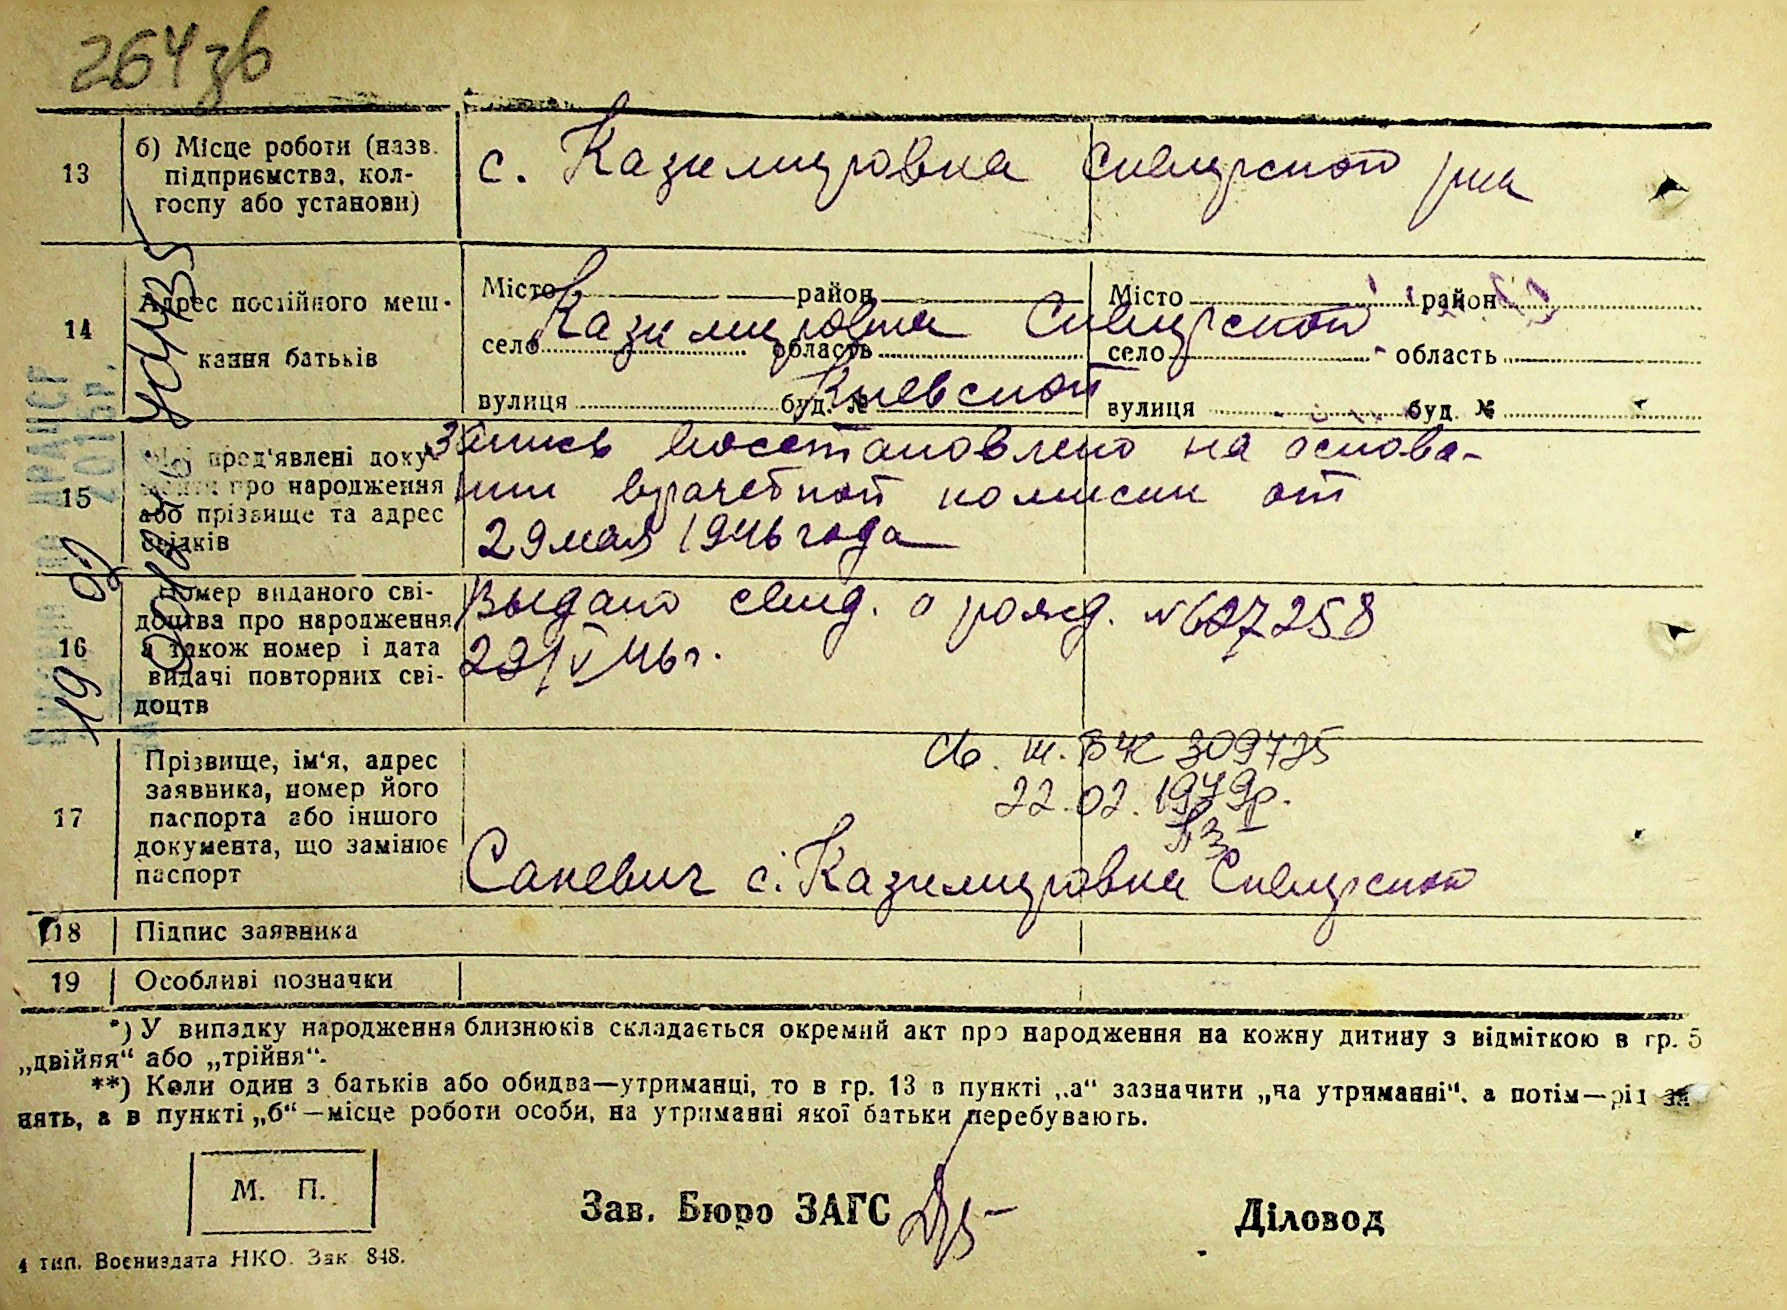 264зв
13 б) Місце роботи (назв. підприємства, колгоспу або установи) с. Казимировка Сквирского р-на
14 Адрес постійного мешкання батьків
Місто район Місто район
Казимировка Сквирской
село область село область
Киевской
вулиця буд. № вулиця буд. №
15 пред'явлені документи про народження або прізвище та адрес свідків
Запись восстановлено на основа-
нии врачебной комисии от
29 мая 1946 года
16 Номер виданого свідоцтва про народження а також номер і дата видачі повторних свідоцтв
Выдано свид. о рожд. № 627258
29/V 46 г.
17 Прізвище, ім'я, адрес заявника, номер його паспорта або іншого документа, що замінює паспорт
309725
22.02.1979р.
Саневич с. Казимировка Сквирской
18 Підпис заявника
19 Особливі позначки
*) У випадку народження близнюків складається окремий акт про народження на кожну дитину з відміткою в гр. 5
„двійня“ або „трійня“.
**) Коли один з батьків або обидва—утриманці, то в гр. 13 в пункті „а“ зазначити „на утриманні“, а потім—рід за
нять, а в пункті „б“—місце роботи особи, на утриманні якої батьки перебувають.
М. П.
Зав. Бюро ЗАГС Діловод
4 тип. Воениздата НКО. Зак 848.